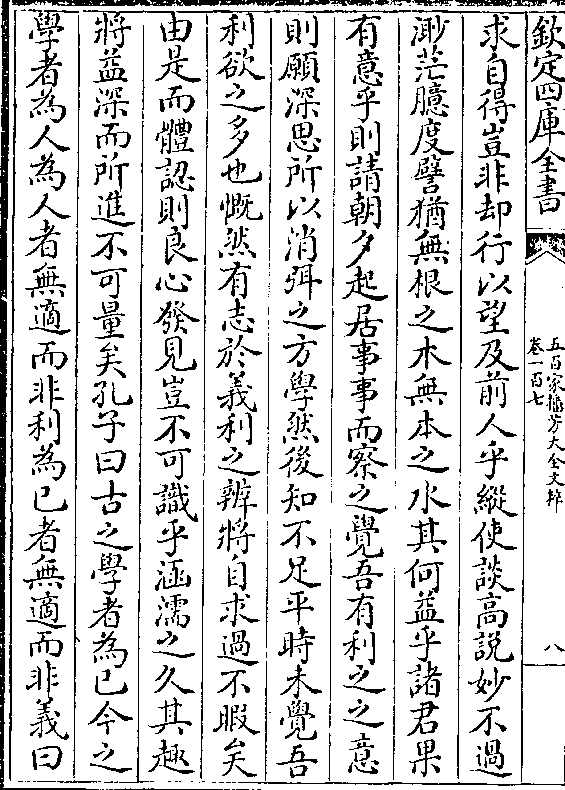 欽定四庫全書
五百家播芳大全文粹
卷一百七
八
求自得豈非却行以望及前人乎縱使談高説妙不過
渺茫臆度譬猶無根之木無本之水其何益乎諸君果
有意乎則請朝夕起居事事而察之覺吾有利之之意
則願深思所以消弭之方學然後知不足平時未覺吾
利欲之多也慨然有志於義利之辨將自求過不暇矣
由是而體認則良心發見豈不可識乎涵濡之久其趣
將益深而所進不可量矣孔子曰古之學者為已今之
學者為人為人者無適而非利為已者無適而非義曰